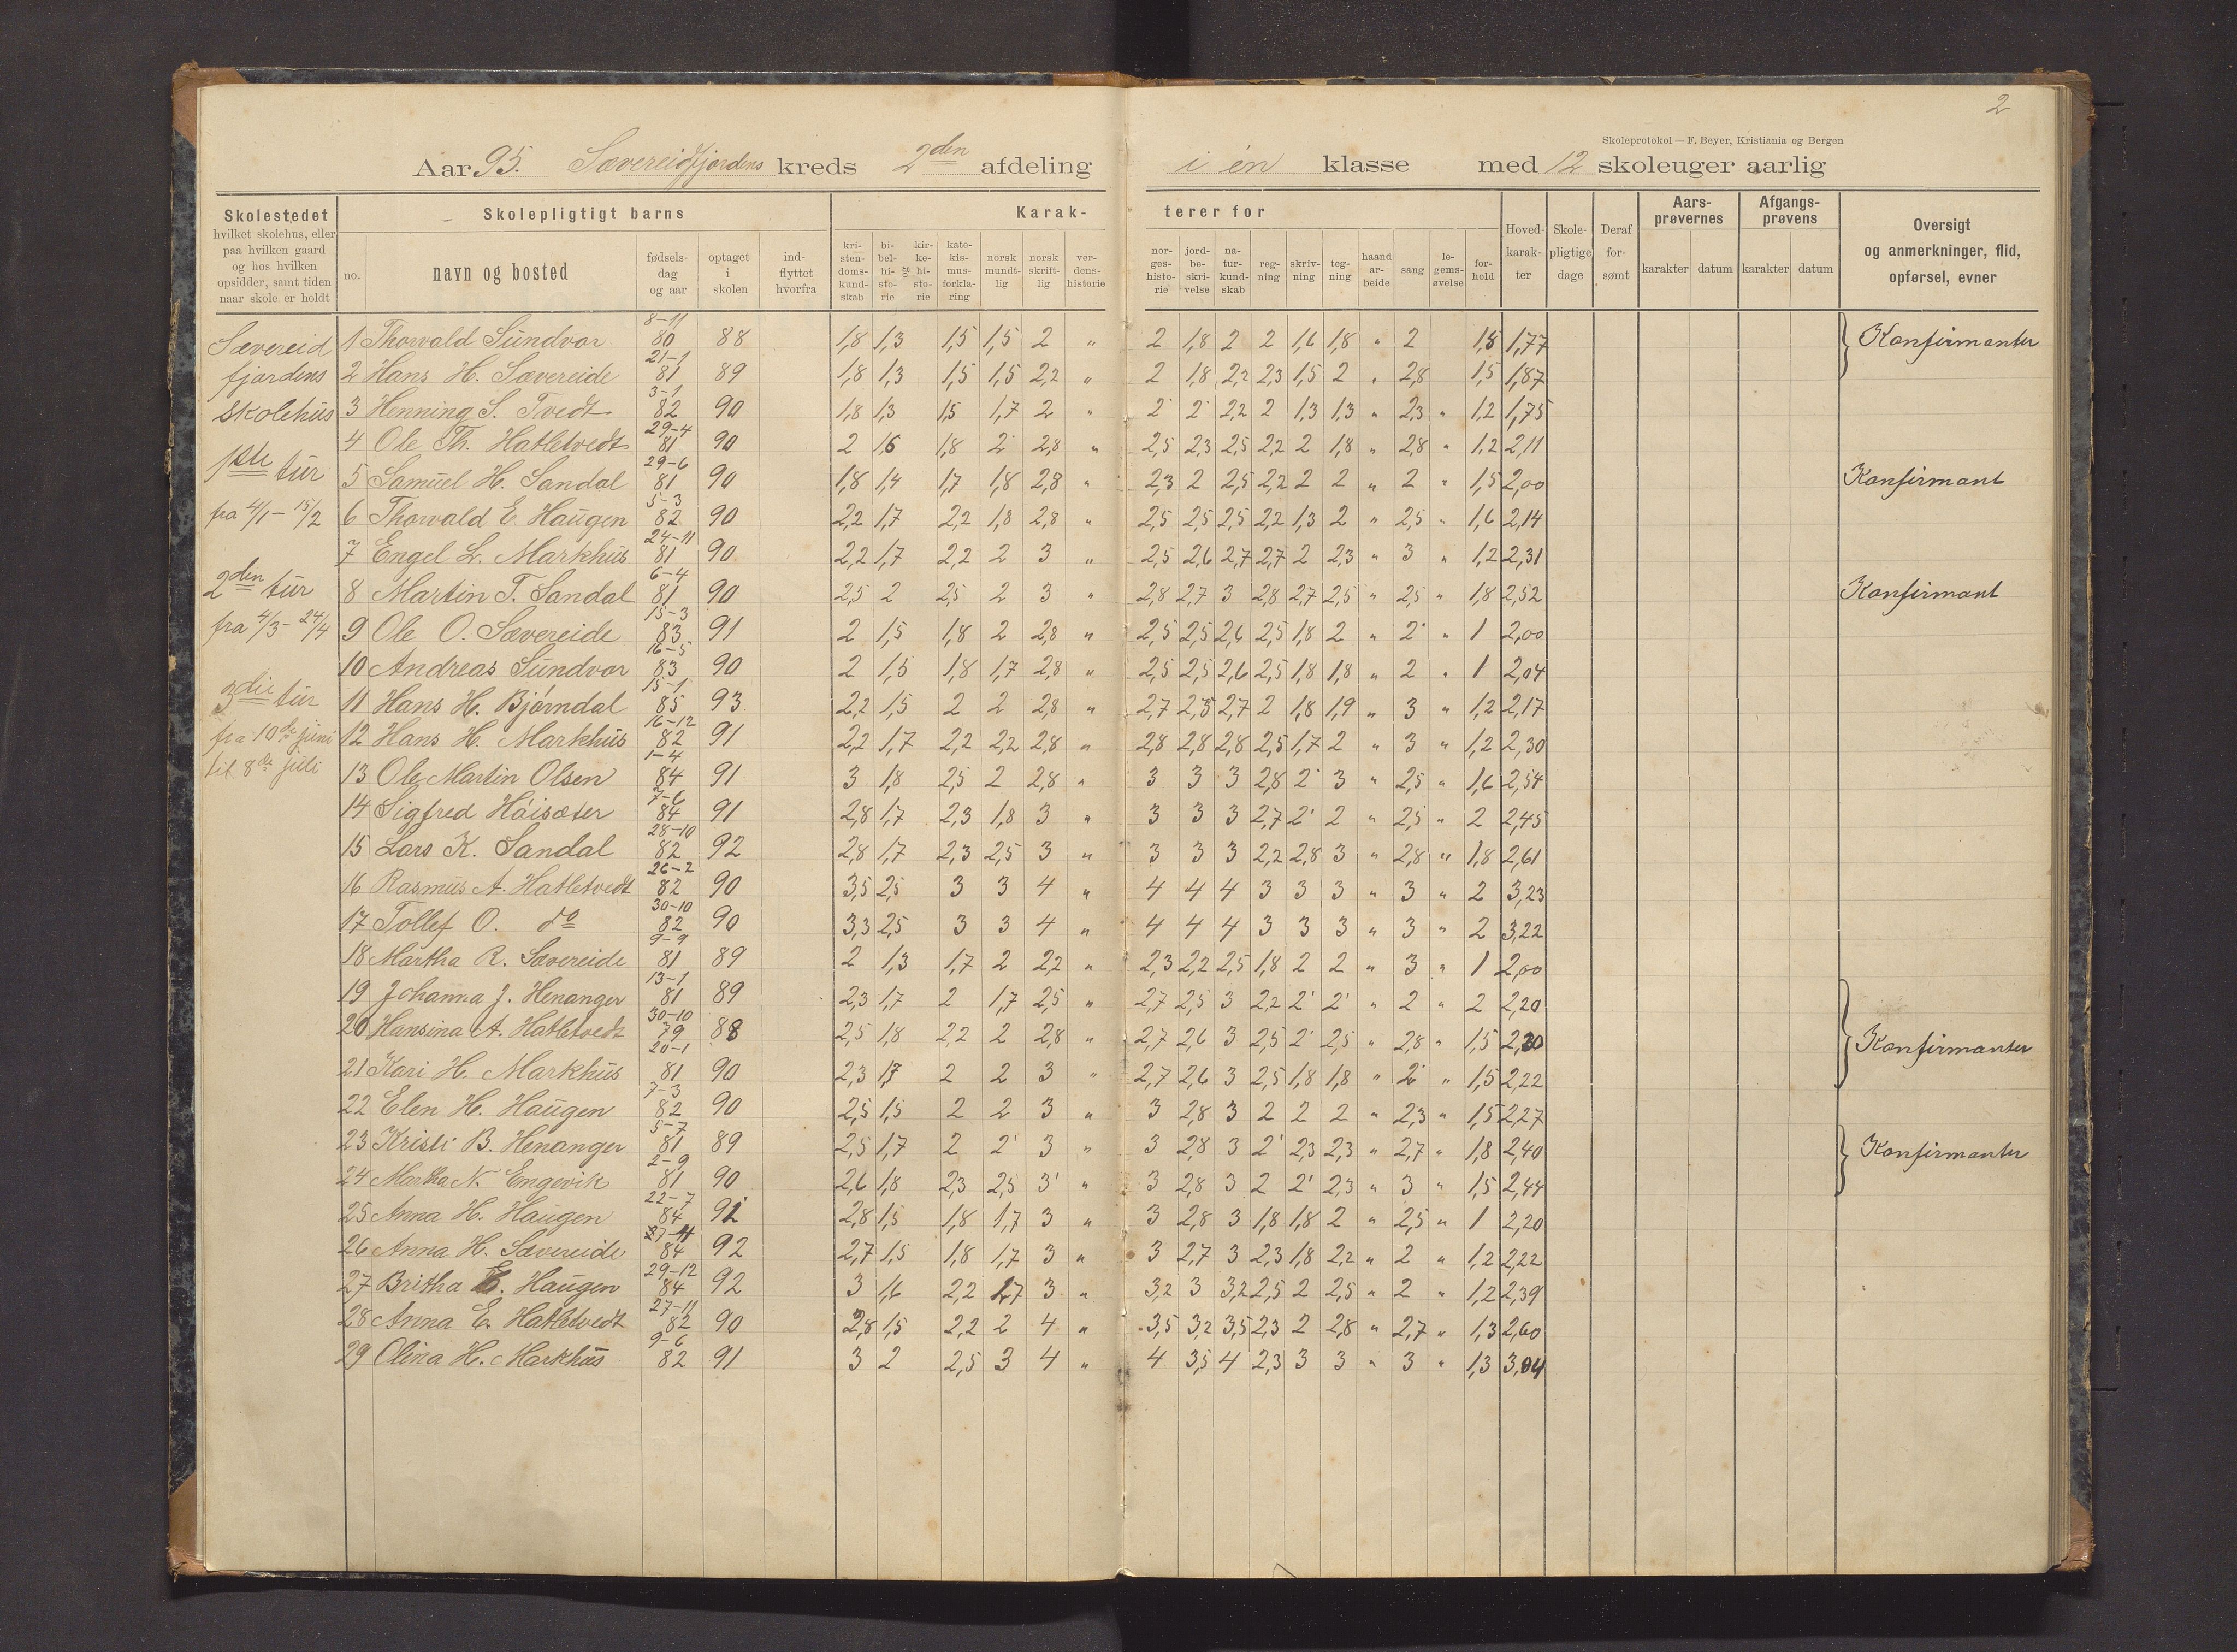 2
Skoleprotokol — F. Beyer, Kristiania og Bergen
Aar 95. Sævereidfjordens kreds 2den afdeling i én klasse med 12 skoleuger aarlig
Skolestedet hvilket skolehus, eller paa hvilken gaard og hos hvilken opsidder, samt tiden naar skole er holdt
Skolepligtigt barns
no. navn og bosted fødselsdag og aar optaget i skolen indflyttet hvorfra
Karakterer for
kristendomskundskab bibelhistorie og kirkehistorie katekismusforklaring norsk mundtlig norsk skriftlig verdenshistorie norgeshistorie jordbeskrivelse naturkundskab regning skrivning tegning haandarbeide sang legemsøvelse forhold
Hovedkarakter Skolepligtige dage Deraf forsømt
Aarsprøvernes karakter datum
Afgangsprøvens karakter datum
Oversigt og anmerkninger, flid, opførsel, evner
Sævereid
fjordens
skolehus
1ste tur
fra 4/1 - 15/2
2den tur
fra 4/3 - 24/4
3die tur
fra 10de juni
til 8de juli
1 Thorvald Sundvor 8-11 80 88 1,8 1,3 1,5 1,5 2 " 2 1,8 2 2 1,6 1,8 " 2 1,8 1,77 Konfirmanter
2 Hans H. Sævereide 21-1 81 89 1,8 1,3 1,5 1,5 2,2 " 2 1,8 2,2 2,3 1,5 2 " 2,8 1,5 1,87
3 Henning S. Tvedt 3-1 82 90 1,8 1,3 1,5 1,7 2 " 2 2 2,2 2 1,3 1,3 " 2,3 " 1,2 1,75
4 Ole Th. Hatletvedt 29-4 81 90 2 1,6 1,8 2 2,8 " 2,5 2,3 2,5 2,2 2 1,8 " 2,8 " 1,2 2,11
5 Samuel H. Sandal 29-6 81 90 1,8 1,4 1,7 1,8 2,8 " 2,3 2 2,5 2,2 2 2 " 2 " 1,5 2,00 Konfirmant
6 Thorvald E. Haugen 5-3 82 90 2,2 1,7 2,2 1,8 2,8 " 2,5 2,5 2,5 2,2 1,3 2 " 2,5 " 1,6 2,14
7 Engel L. Markhus 24-11 81 90 2,2 1,7 2,2 2 3 " 2,5 2,6 2,7 2,7 2 2,3 " 3 " 1,2 2,31
8 Martin T. Sandal 6-4 81 90 2,5 2 2,5 2 3 " 2,8 2,7 3 2,8 2,7 2,5 " 2,5 " 1,8 2,52 Konfirmant
9 Ole O. Sævereide 15-3 83 91 2 1,5 1,8 2 2,8 " 2,5 2,5 2,6 2,5 1,8 2 " 2 " 1 2,00
10 Andreas Sundvor 16-5 83 90 2 1,5 1,8 1,7 2,8 " 2,5 2,5 2,6 2,5 1,8 1,8 " 2 " 1 2,04
11 Hans H. Bjørndal 15-1 85 93 2,2 1,5 2 2 2,8 " 2,7 2,5 2,7 2 1,8 1,9 " 3 " 1,2 2,17
12 Hans H. Markhus 16-12 82 91 2,2 1,7 2,2 2,2 2,8 " 2,8 2,8 2,8 2,5 1,7 2 " 3 " 1,2 2,30
13 Ole Martin Olsen 1-4 84 91 3 1,8 2,5 2 2,8 " 3 3 3 2,8 2 3 " 2,5 " 1,6 2,54
14 Sigfred Høisæter 7-6 84 91 2,8 1,7 2,3 1,8 3 " 3 3 3 2,7 2 2 " 2,5 " 2 2,45
15 Lars K. Sandal 28-10 82 92 2,8 1,7 2,3 2,5 3 " 3 3 3 2,2 2,8 3 " 2,8 " 1,8 2,61
16 Rasmus A. Hatletvedt 26-2 82 90 3,5 2,5 3 3 4 " 4 4 4 3 3 3 " 3 " 2 3,23
17 Tollef O. do 30-10 82 90 3,3 2,5 3 3 4 " 4 4 4 3 3 3 " 3 " 2 3,22
18 Martha R. Sævereide 9-9 81 89 2 1,3 1,7 2 2,2 " 2,3 2,2 2,5 1,8 2 2 " 3 " 1 2,00
19 Johanna J. Henanger 13-1 81 89 2,3 1,7 2 1,7 2,5 " 2,7 2,5 3 2,2 2 2 " 2 " 2 2,20
20 Hansina A. Hatletvedt 30-10 79 88 2,5 1,8 2,2 2 2,8 " 2,7 2,6 3 2,5 2 2,5 " 2,8 " 1,5 2,30 Konfirmanter
21 Kari H. Markhus 20-1 81 90 2,3 1,7 2 2 3 " 2,7 2,6 3 2,5 1,8 1,8 " 2 " 1,5 2,22
22 Elen H. Haugen 7-3 82 90 2,5 1,5 2 2 3 " 3 2,8 3 2 2 2 " 2,3 " 1,5 2,27
23 Kristi B. Henanger 5-7 81 89 2,5 1,7 2 2 3 " 3 2,8 3 2 2,3 2,3 " 2,7 " 1,8 2,40 Konfirmanter
24 Martha N. Engevik 2-9 81 90 2,6 1,8 2,3 2,5 3 " 3 2,8 3 2 2 2,3 " 3 " 1,5 2,44
25 Anna H. Haugen 22-7 84 92 2,8 1,5 1,8 1,7 3 " 3 2,8 3 1,8 1,8 2 " 2,5 " 1 2,20
26 Anna H. Sævereide 27-11 84 92 2,7 1,5 1,8 1,7 3 " 3 2,7 3 2,3 1,8 2,2 " 2 " 1,2 2,22
27 Britha E. Haugen 29-12 84 92 3 1,6 2,2 1,7 3 " 3,2 3 3,2 2,5 2 2,5 " 2 " 1,2 2,39
28 Anna E. Hatletvedt 27-11 82 90 2,8 1,5 2,2 2 4 " 3,5 3,2 3,5 2,3 2 2,8 " 2,7 " 1,3 2,60
29 Olina H. Markhus 9-6 82 91 3 2 2,5 3 4 " 4 3,5 4 2,3 3 3 " 3 " 1,3 3,04